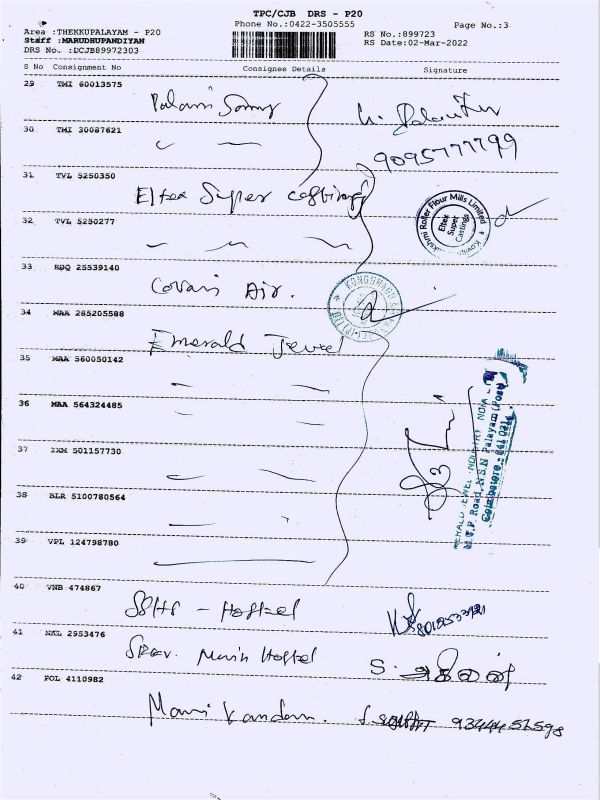 TPC/CJB DRS - P20
Phone No.:0422-3505555
Page No.:3
Area :THEKKUPALAYAM - P20
RS No.:899723
Staff :MARUDHUPANDIYAN
RS Date:02-Mar-2022
DRS No. :DCJB89972303
S No Consignment No Consignee Details Signature
29 TMI 60013575
Palani Samy
30 TMI 30087621
9095777799
31 TVL 5250350
Eltex Super castings
32 TVL 5250277
Roller Flour Mills Limited
Eltex
Super
Castings
33 BDQ 25539140
Covai Air.
34 MAA 285205588
Emerald Jewel
35 MAA 560050142
36 MAA 564324485
37 IXM 501157730
38 BLR 5100780564
39 VPL 124798780
JEWEL INDUSTRY INDIA
Road, N.S.N Palayam (Post)
Coimbatore - 641 031
40 VNB 474867
SSHF - Hostel
41 NKL 2953476
Main Hostel
S. அகிலன்
42 POL 4110982
Mani Kandan.
93444 52598